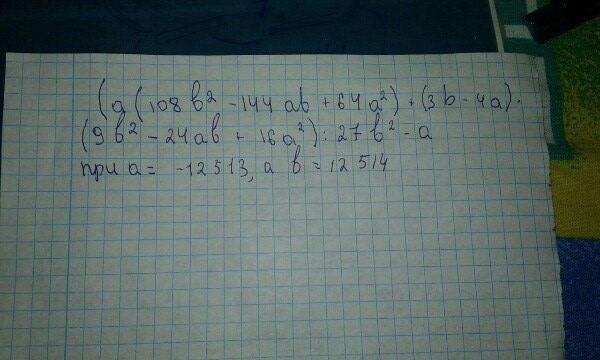 (a (108b² - 144ab + 64a²) + (3b - 4a) ·
(9b² - 24ab + 16a²) : 27b² - a
при a = -12513, а b = 12514